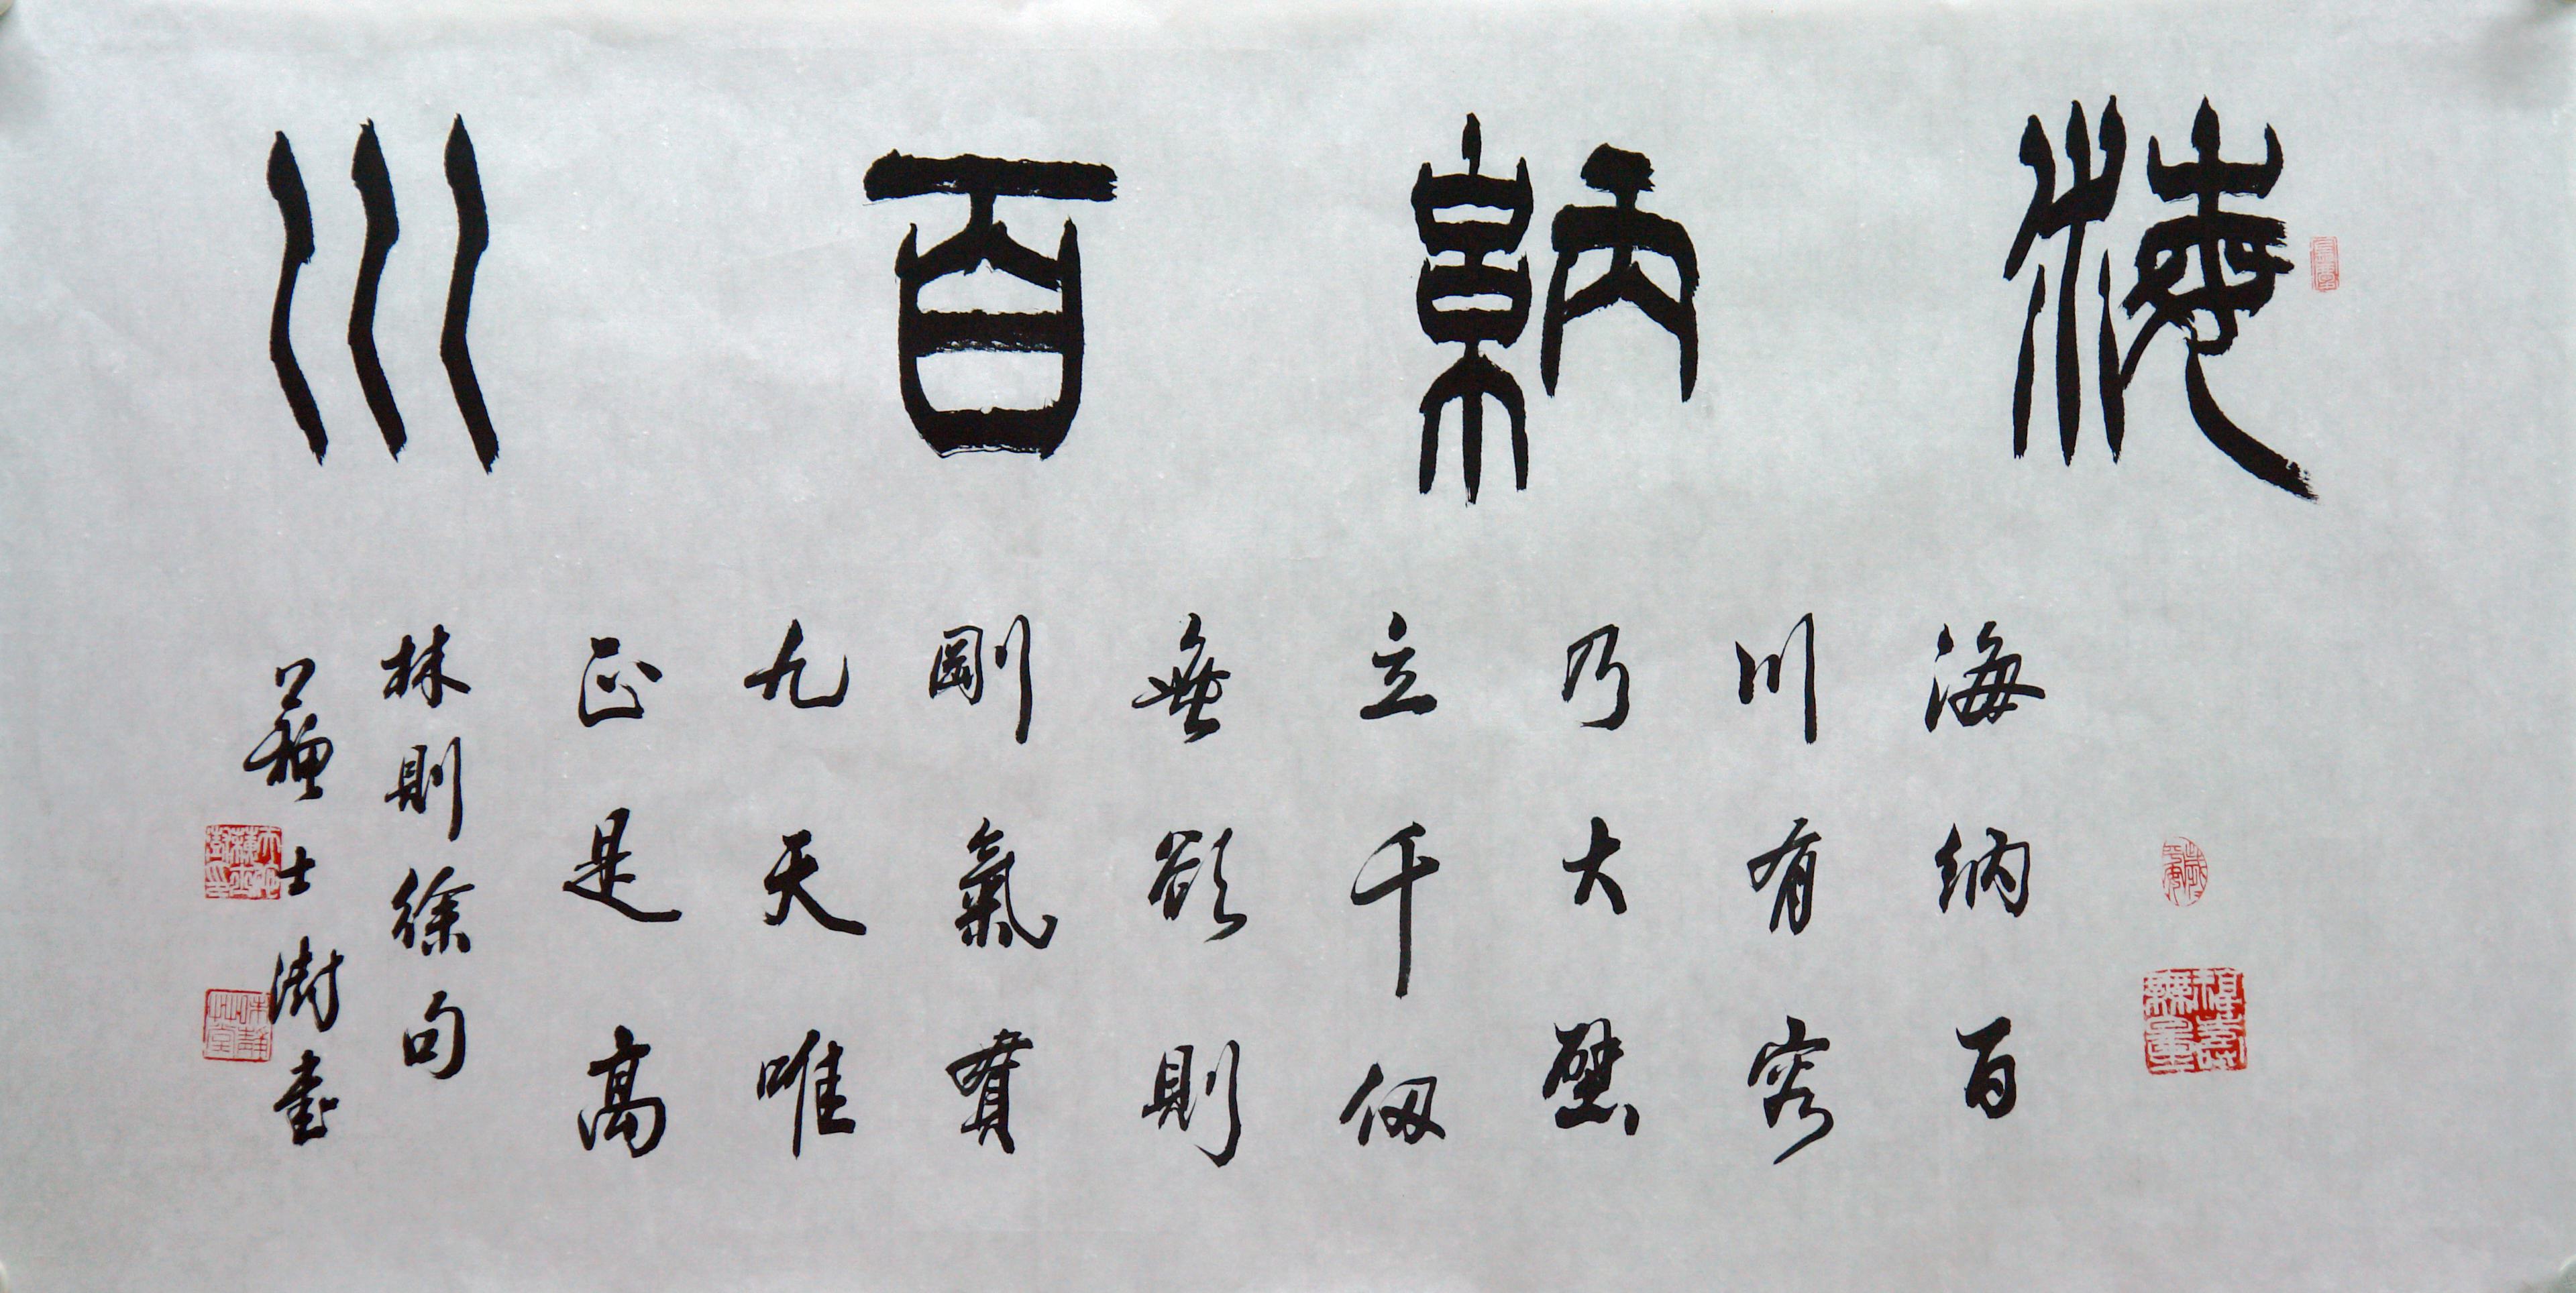 海納百川
海纳百
川有容
乃大壁
立千仞
無欲則
剛氣貫
九天唯
正是高
林則徐句
蘇士澍書